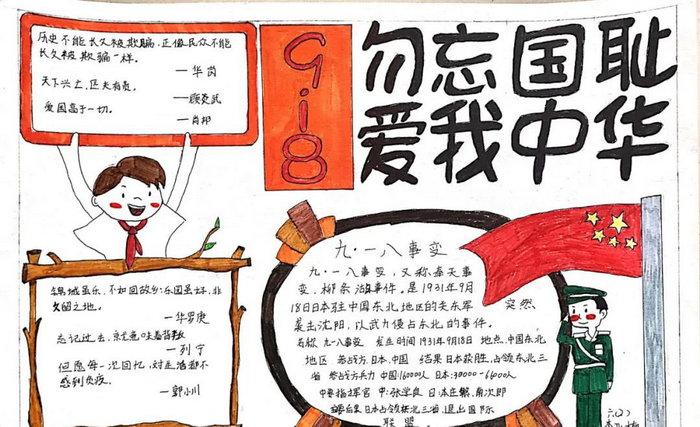 历史不能长久被欺骗,正像民众不能
长久被欺骗一样。
——华岗
天下兴亡,匹夫有责。
——顾炎武
爱国高于一切。
——肖邦
9.18
勿忘国耻
爱我中华
锦城虽乐,不如回故乡;乐园虽好,非
久留之地。
——华罗庚
忘记过去,就意味着背叛
——列宁
但愿每一次回忆,对生活都不
感到负疚。
——郭小川
九·一八事变
九·一八事变,又称奉天事
变、柳条湖事件。是1931年9月
18日日本驻中国东北地区的关东军 突然
袭击沈阳,以武力侵占东北的事件。
名称 九一八事变 发生时间 1931年9月18日 地点 中国东北
地区 参战方 日本、中国 结果 日本获胜,占领东北三
省 参战方兵力 中国:16000人 日本:30000-66000人
指挥官 中:张学良 日:本庄繁、南次郎
日本占领东北三省,退出国际
联盟。